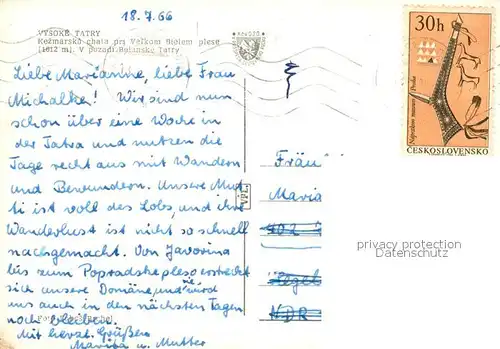 18.7.66
VYSOKÉ TATRY
Kežmarská chata pri Veľkom Bielom plese
(1612 m). V pozadí Belanské Tatry
Liebe Marianne, liebe Frau
Michalke! Wir sind nun
schon über eine Woche in
der Tatra und nutzen die
Tage recht aus mit Wandern
und Bewundern. Unsere Mut-
ti ist voll des Lobs, und ihre
Wanderlust ist nicht so schnell
nachgemacht. Von Javorina
bis zum Popradske pleso erstreckt
sich unsere Domäne, und wird
uns auch in den nächsten Tagen
noch bleiben.
Mit herzl. Grüßen
Marita u. Mutter
Fräu
Maria
402
DDR
30h
Národní museum Praha
ČESKOSLOVENSKO
privacy protection
Datenschutz